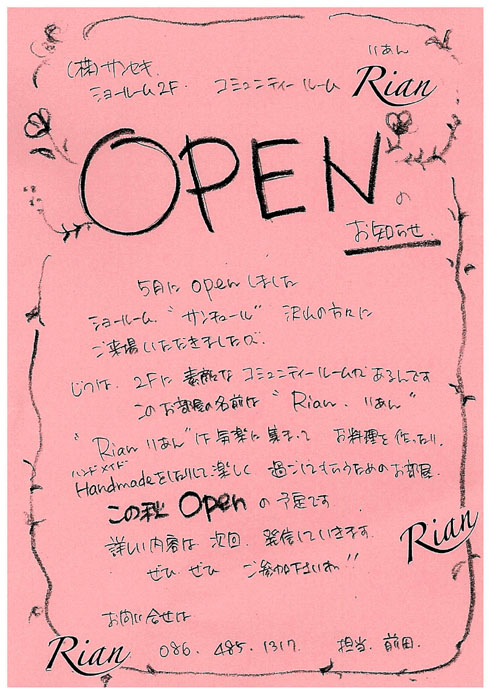 (株)サンセキ りあん
ショールーム2F. コミュニティールーム Rian
OPEN の
お知らせ.
5月に Open しました
ショールーム. "サンキュール" 沢山の方々に
ご来場いただきましたが.
じつは. 2Fに 素敵な コミュニティールームが あるんです
このお部屋の名前は "Rian. りあん"
"Rian りあん"は 気楽に 集まって お料理を 作ったり.
ハンドメイド
Handmadeをしたりして楽しく 過ごしてもらうためのお部屋.
この秋 Open の予定です
詳しい内容は 次回. 発信していきます.
ぜひ ぜひ ご参加下さいね!!
Rian
お問い合せは
Rian 086. 485. 1317. 担当. 前田.